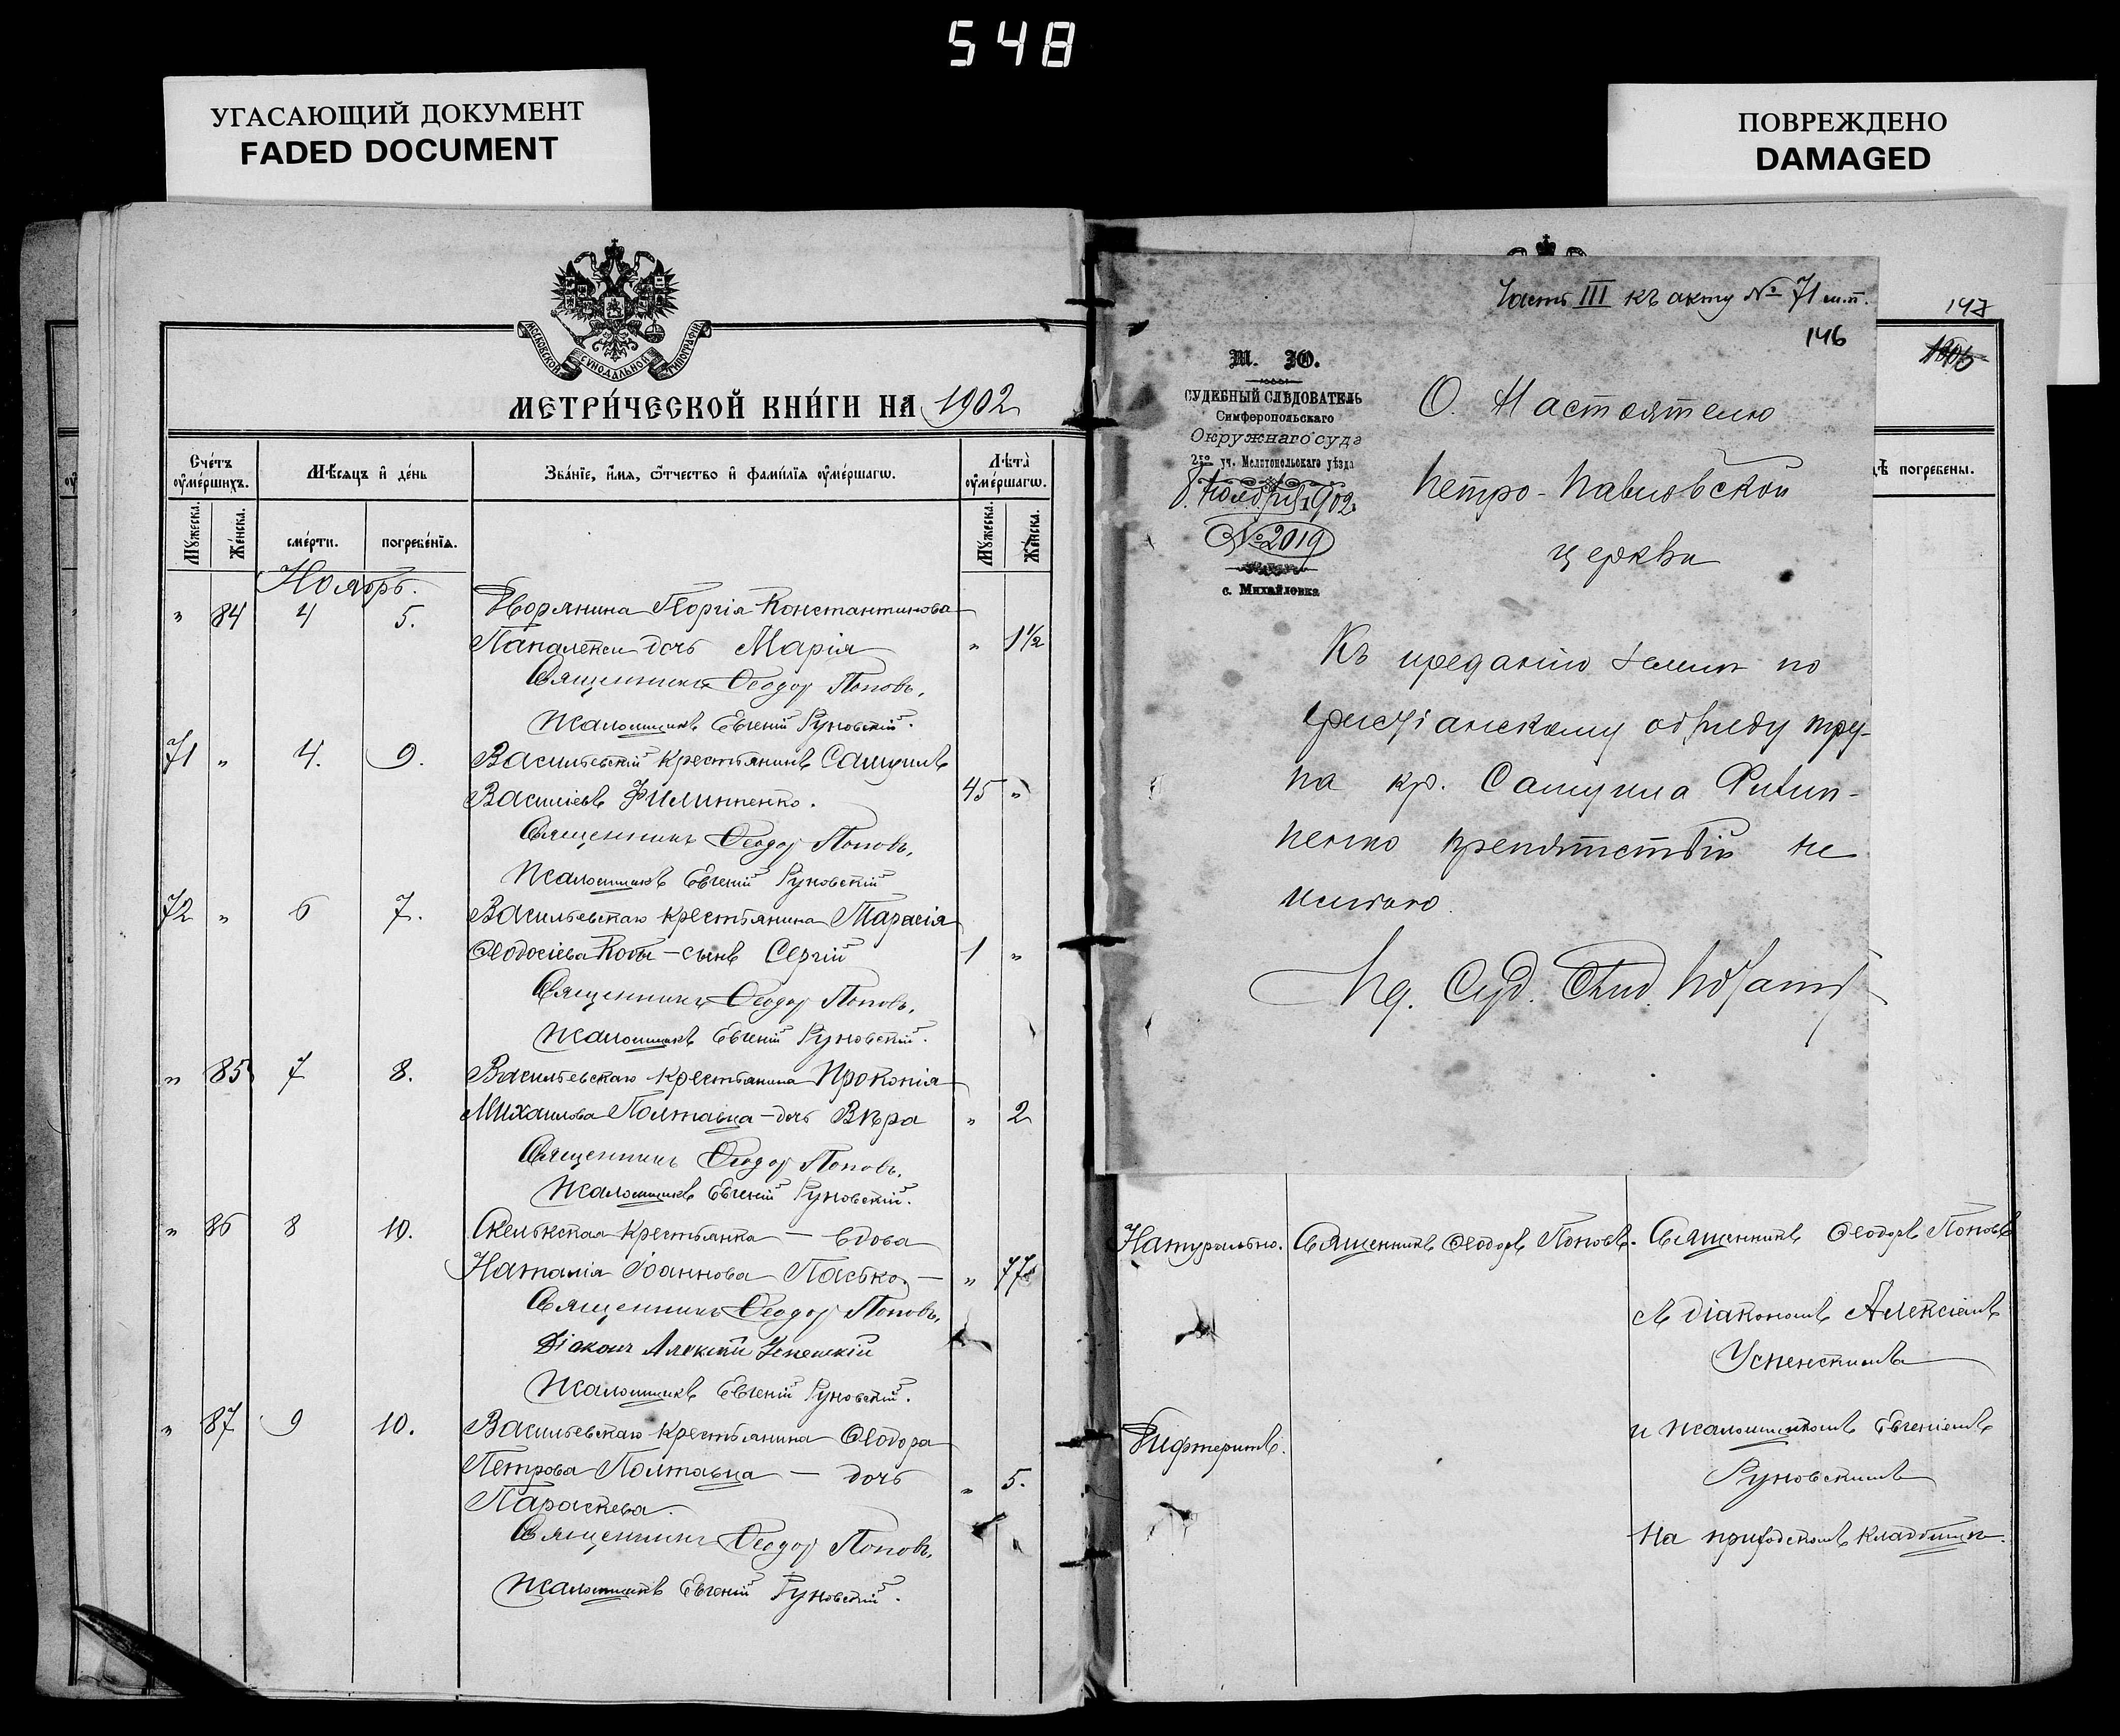 548
УГАСАЮЩИЙ ДОКУМЕНТ
FADED DOCUMENT
ПОВРЕЖДЕНО
DAMAGED
МОСКОВСКОЙ СѴНОДАЛЬНОЙ ТИПОГРАФІИ
МЕТРИ́ЧЕСКОЙ КНИ́ГИ НА 1902
Сче́тъ оу҆ме́ршихъ.
Мѣ́сяцъ и҆ де́нь
Зва́нїе, и҆́мя, ѻ҆́тчество и҆ фами́лїя оу҆ме́ршагѡ.
Лѣта̀ оу҆ме́ршагѡ.
Мꙋ́жеска. Же́нска.
сме́рти. погребе́нїѧ.
Мꙋ́жеска. Же́нска.
Ноябрь.
" 84 4 5. Дворянина Георгія Константинова
Папалекси дочь Марія " 1½
Священникъ Ѳеодоръ Поповъ.
Псаломщикъ Евгеній Руновскій.
71 " 4. 9. Васильевскій крестьянинъ Самуилъ
Васильевъ Филиппенко. 45 "
Священникъ Ѳеодоръ Поповъ.
Псаломщикъ Евгеній Руновскій
72 " 6 7. Васильевскаго крестьянина Тарасія
Ѳеодосіева Кобы – сынъ Сергій 1 "
Священникъ Ѳеодоръ Поповъ.
Псаломщикъ Евгеній Руновскій.
" 85 7 8. Васильевскаго крестьянина Прокопія
Михаилова Полтавца – дочь Вѣра " 2
Священникъ Ѳеодоръ Поповъ.
Псаломщикъ Евгеній Руновскій.
" 86 8 10. Скельская крестьянка – вдова
Наталія Іоаннова Пасько – " 77
Священникъ Ѳеодоръ Поповъ.
Діаконъ Алексій Успенскій
Псаломщикъ Евгеній Руновскій.
" 87 9 10. Васильевскаго крестьянина Ѳеодора
Петрова Полтавца – дочь " 5.
Параскева.
Священникъ Ѳеодоръ Поповъ.
Псаломщикъ Евгеній Руновскій.
Часть III къ акту № 71 м.п.
146
147
М. Ю.
СУДЕБНЫЙ СЛѢДОВАТЕЛЬ
Симферопольскаго
Окружнаго суда
2го уч. Мелитопольскаго уѣзда
8 Ноября 1902.
№ 2019
с. Михайловка
О. Настоятелю
Петро-Павловской
церкви
Къ преданію землѣ по
христіанскому обряду тру-
па кр. Самуила Филип-
пенко препятствій не
имѣю.
Суд. Слѣд.
дѣ погребены.
Натурально. Священникъ Ѳеодоръ Поповъ. Священникъ Ѳеодоръ Поповъ
съ діакономъ Алексіемъ
Успенскимъ
Дифтеритъ. и псаломщикомъ Евгеніемъ
Руновскимъ
На приходскомъ кладбищѣ.